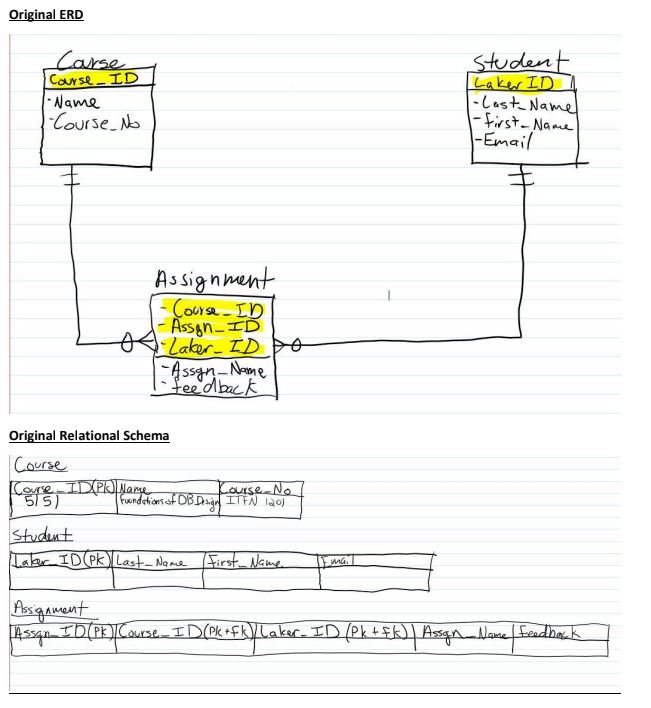 Original ERD
Course
Course_ID
-Name
-Course_No
Student
Laker ID
-Last_Name
-first_Name
-Email
Assignment
- Course_ID
- Assgn_ID
- Laker_ID
-Assgn_Name
-feedback
Original Relational Schema
Course
Course_ID(PK) Name Course_No
5151 Foundations of DB Design ITFN 1201
Student
Laker_ID(PK) Last_Name First_Name Email
Assignment
Assgn_ID(PK) Course_ID(PK+fk) Laker_ID (PK+fk) Assgn_Name feedback